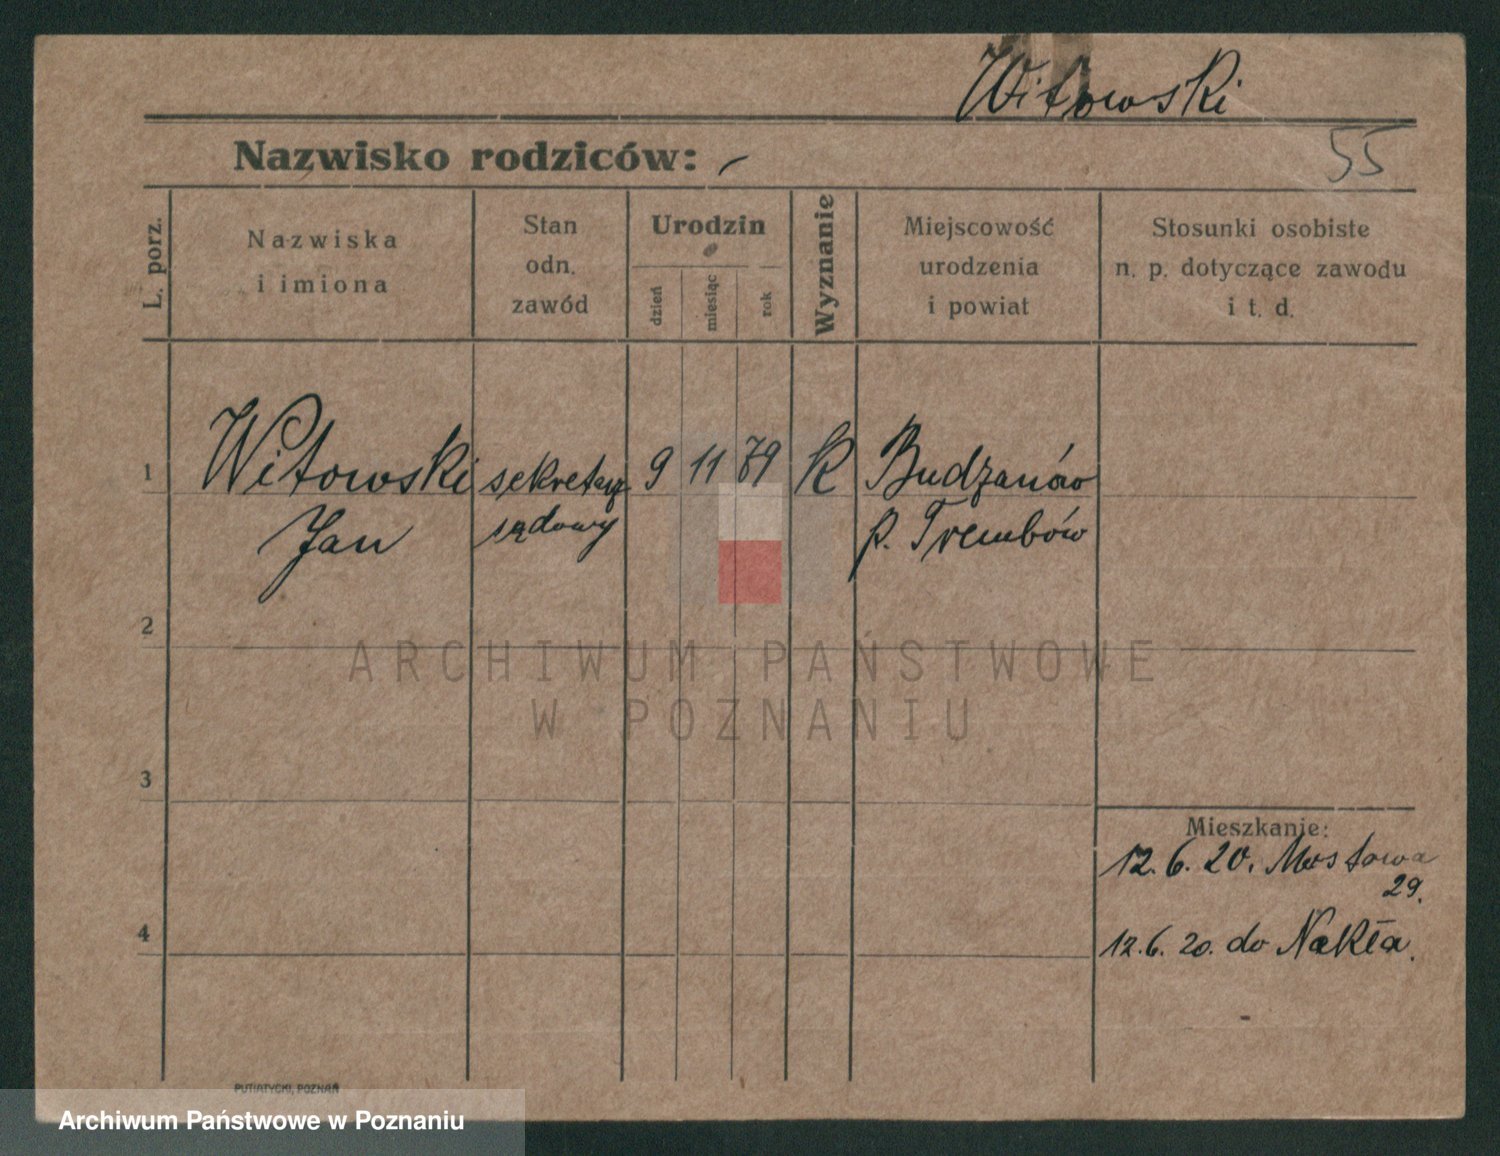 Witowski
55
Nazwisko rodziców: –
L. porz.
Nazwiska
i imiona
Stan
odn.
zawód
Urodzin
dzień
miesiąc
rok
Wyznanie
Miejscowość
urodzenia
i powiat
Stosunki osobiste
n. p. dotyczące zawodu
i t. d.
1
Witowski
Jan
sekretarz
sądowy
9 11 79
K
Budzanów
p. Trembów
2
ARCHIWUM PAŃSTWOWE
W POZNANIU
3
Mieszkanie:
12.6.20. Mostowa
29.
4
12.6.20. do Nakła.
PUTIATYCKI, POZNAŃ
Archiwum Państwowe w Poznaniu